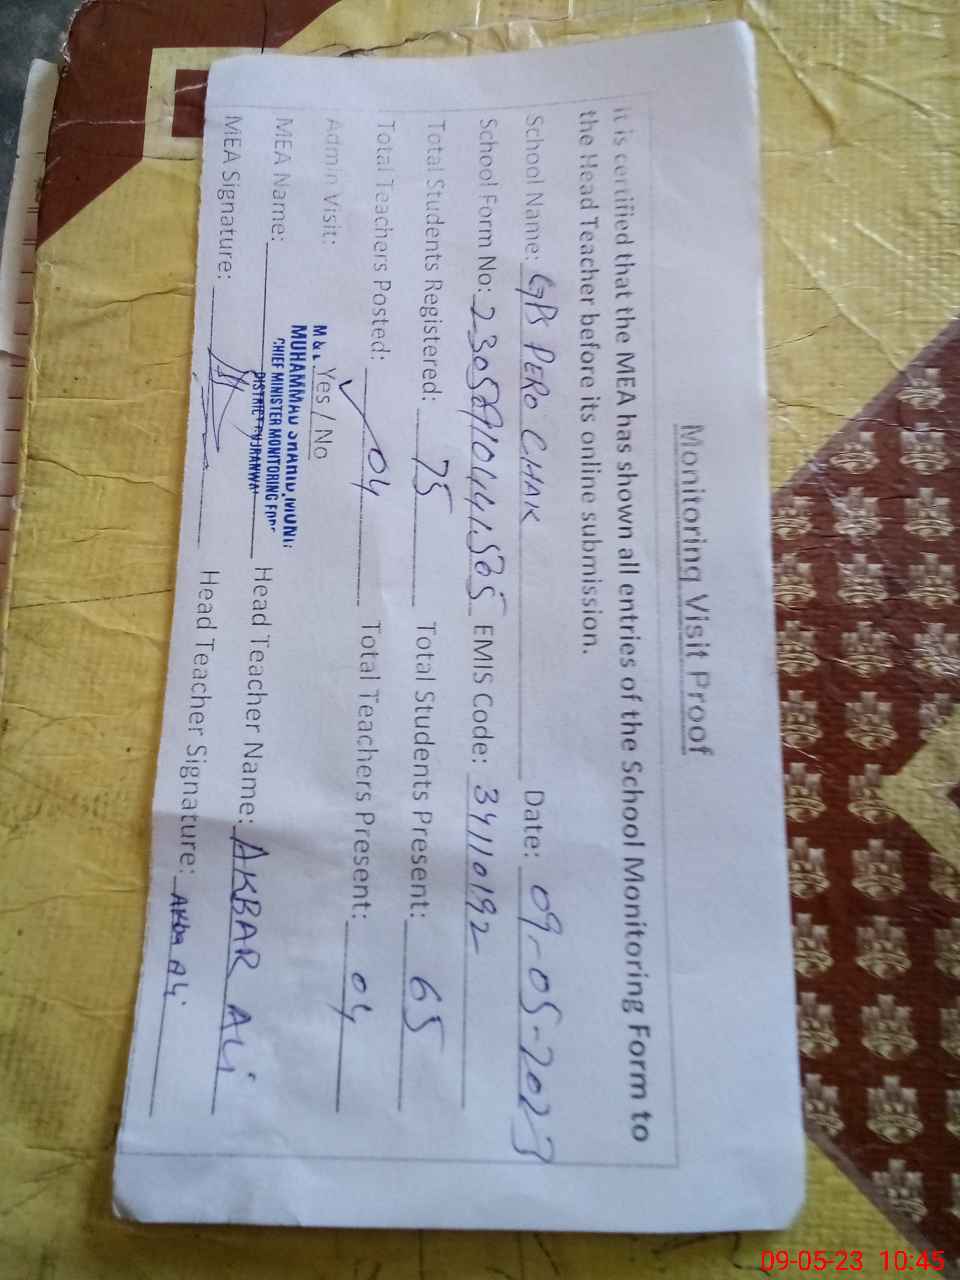 Monitoring Visit Proof
It is certified that the MEA has shown all entries of the School Monitoring Form to
the Head Teacher before its online submission.
School Name: GPS PERO CHAK Date: 09-05-2023
School Form No: EMIS Code: 34110192
Total Students Registered: 75 Total Students Present: 65
Total Teachers Posted: 04 Total Teachers Present: 04
Admin Visit: Yes / No
MUHAMMAD
CHIEF MINISTER MONITORING
DISTRICT
MEA Name: Head Teacher Name: AKBAR ALi
MEA Signature: Head Teacher Signature: Akba Ali
09-05-23 10:45